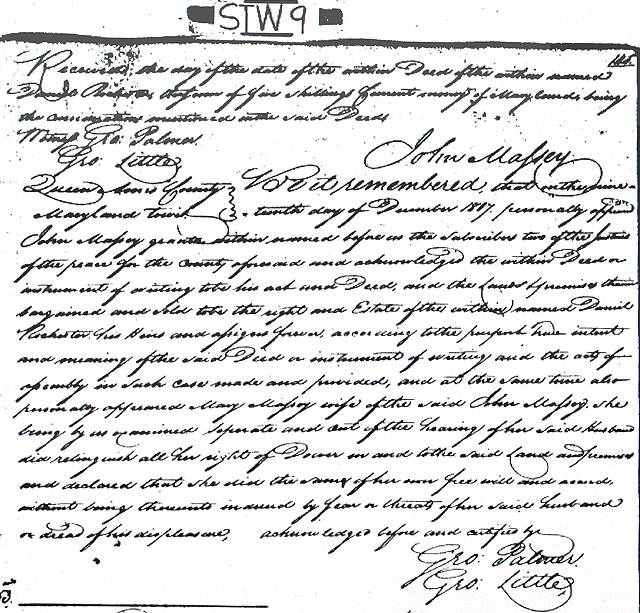 STW9
Received the day of the date of the within Deed of the within named
Daniel Rochester the sum of five shillings Current money of Maryland being
the consideration mentioned in the said Deed
Witness Geo: Palmer
Geo: Little
John Massey
Queen Anns County Be it remembered, that on the nine
Maryland towit tenth day of December 1807 personally appeard
John Massey grantor within named before us the subscribers two of the Justices
of the peace for the County aforesaid and acknowledged the within Deed or
instrument of writing to be his act and Deed, and the Lands & premises therein
bargained and sold to be the right and Estate of the within named Daniel
Rochester his Heirs and assigns forever, according to the purport true intent
and meaning of the said Deed or instrument of writing and the acts of
assembly in such case made and provided, and at the same time also
personally appeared Mary Massey wife of the said John Massey, she
being by us examined seperate and out of the hearing of her said Husband
did relinquish all her right of Dower in and to the said Land and premises
and declared that she did the same of her own free will and accord,
without being thereunto induced by fear or threats of her said husband
or dread of his displeasure, acknowledged before and certified by
Geo: Palmer
Geo: Little